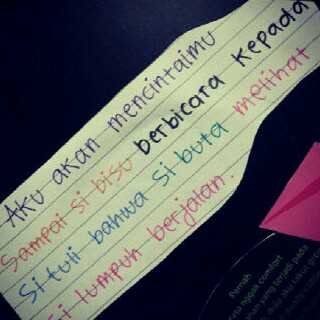 Aku akan mencintaimu
Sampai si bisu berbicara kepada
Si tuli bahwa si buta melihat
Si lumpuh berjalan.
Pernah
comfort
yang terjadi pada